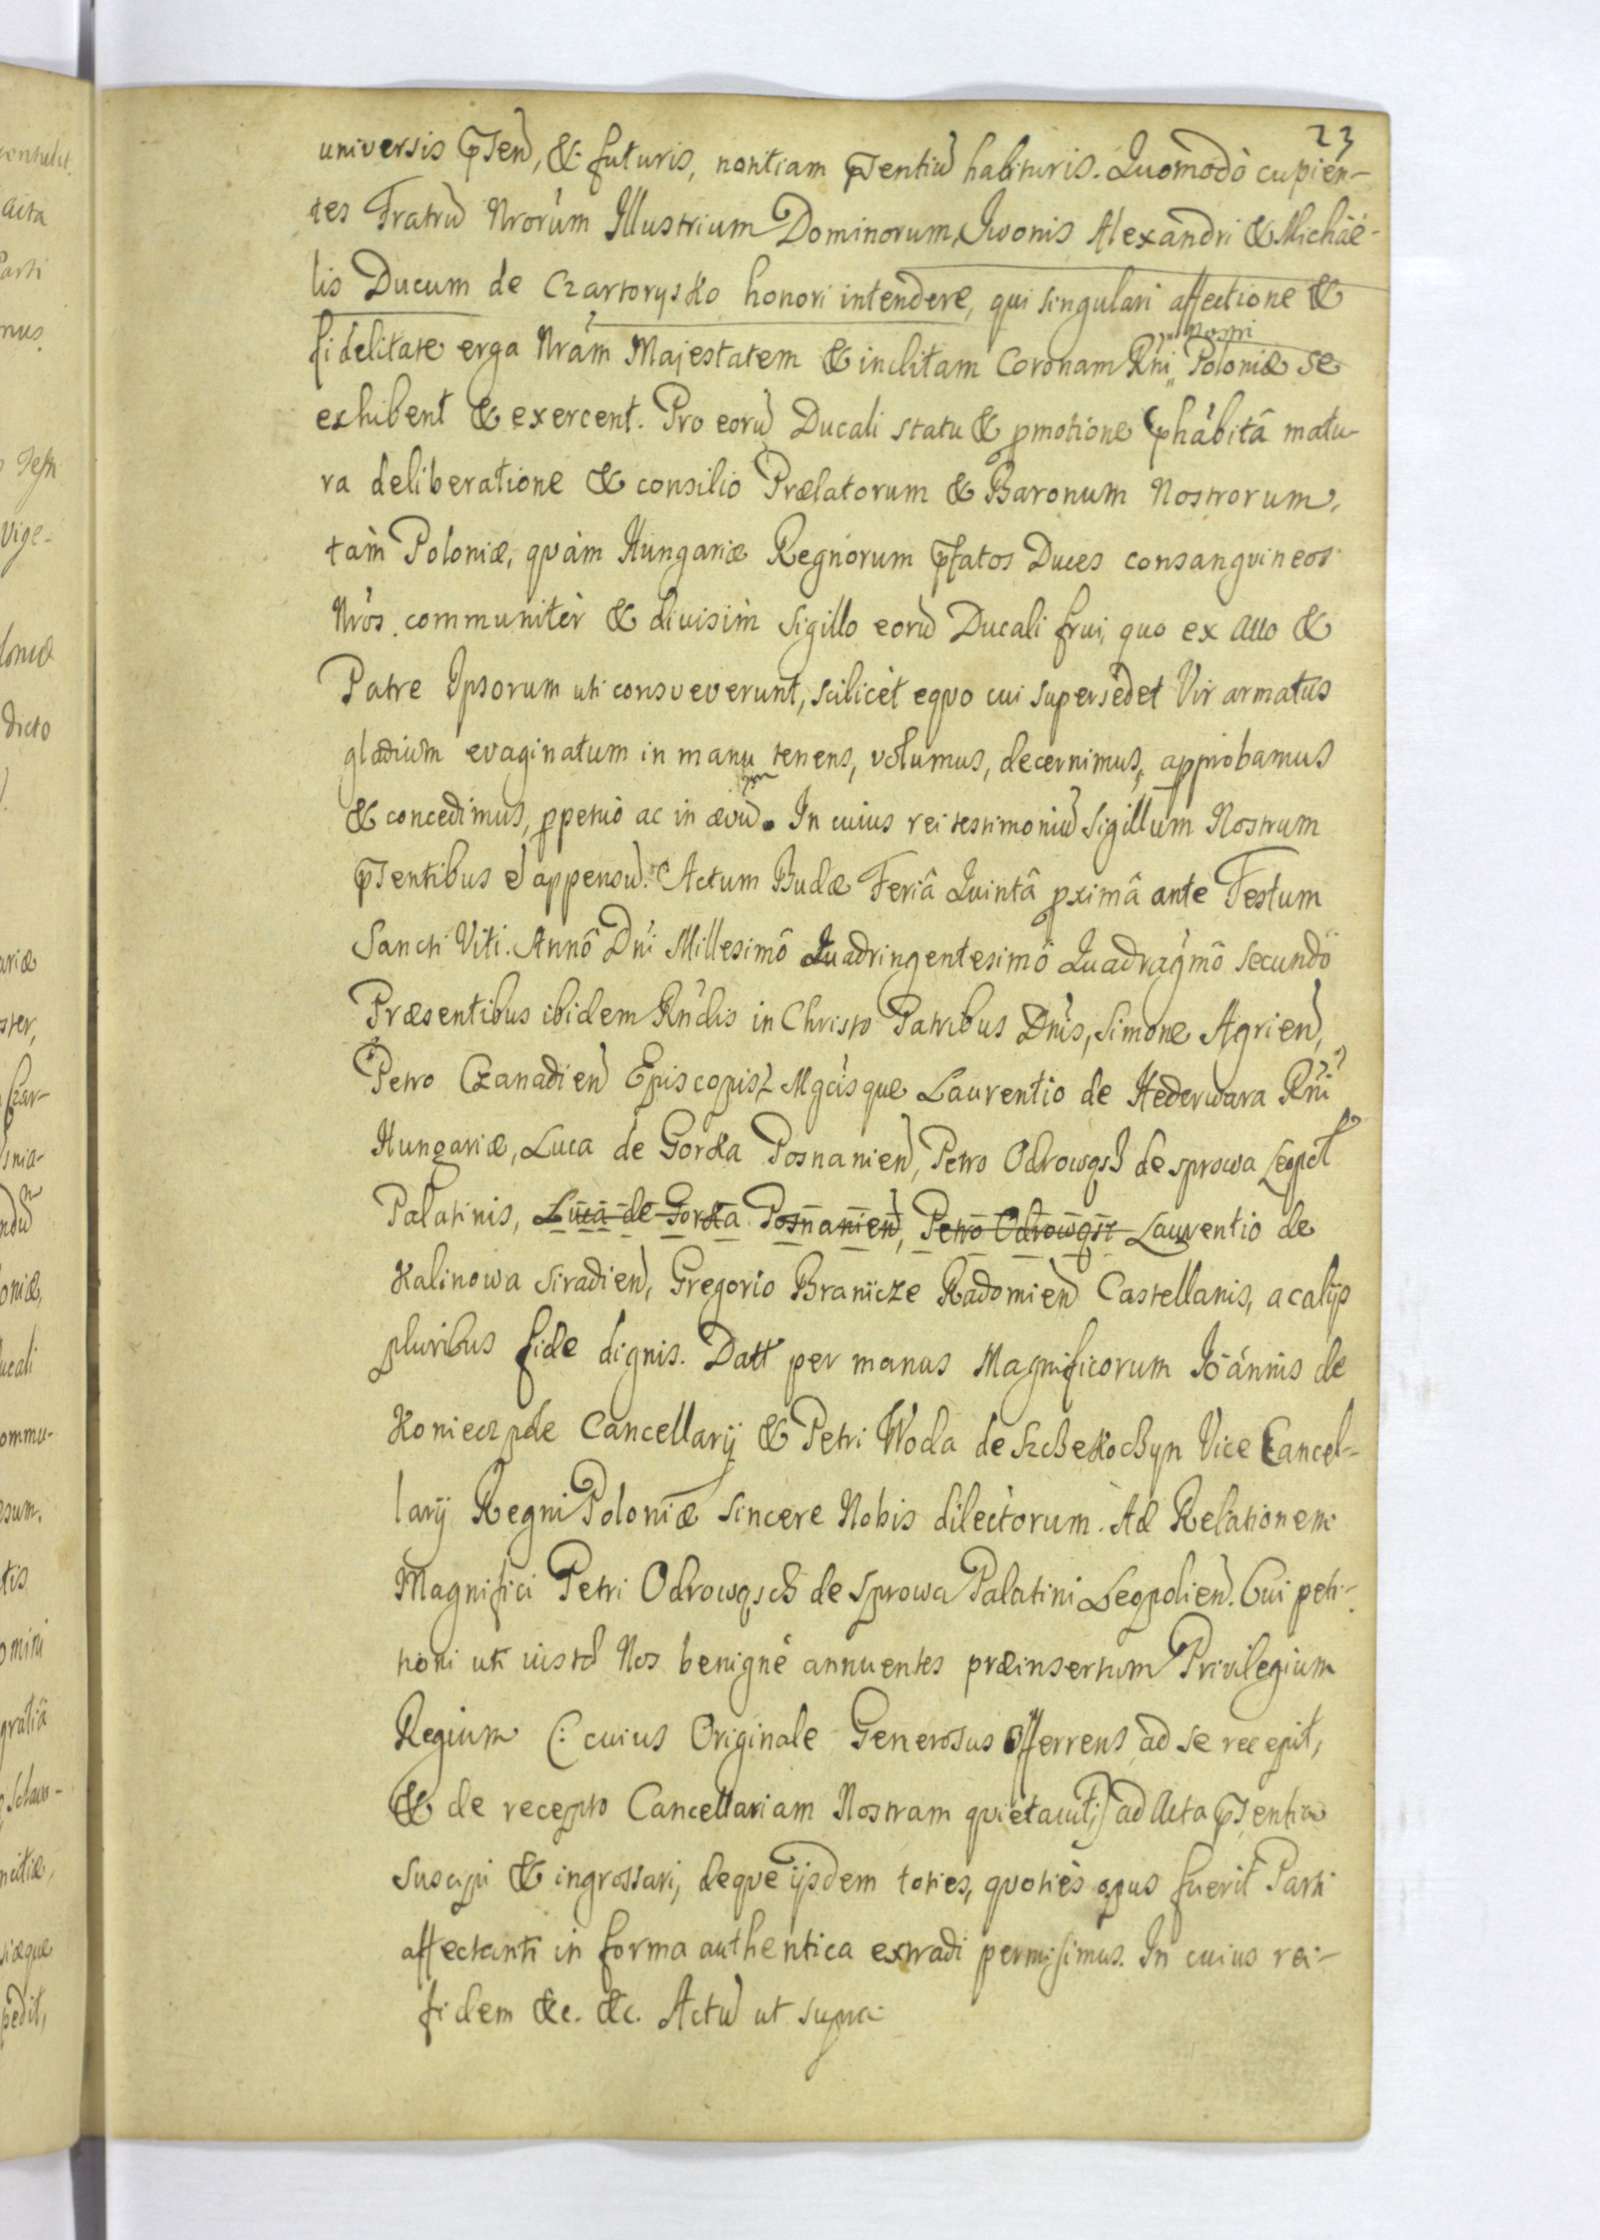 23
universis pñtend, & futuris, notitiam pñtentiũ habituris. Quomodò cupien-
tes Fratrũ Nrorúm Illustrium Dominorum, Iwonis Alexandri & Michaë-
lis Ducum de Czartorysko honori intendere, qui singulari affectione &
fidelitate erga Nrám Majestatem & inclitam Coronam Rñi „Nostri Poloniæ se
exhibent & exercent. Pro eorũ Ducali statu & pmotione phàbitâ matu-
ra deliberatione & consilio Prælatorum & Baronum Nostrorum,
tàm Poloniæ, quàm Hungariæ Regnorum pfatos Duces consanguineos
Nrós communitèr & divisìm Sigillo eorũ Ducali frui, quo ex Auo &
Patre Ipsorum uti consveverunt, scilicèt equo cui supersèdet Vir armatus
gladium evaginatum in manu tenens, volumus, decernimus, approbamus
& concedimus, ppetuò ac in ævũ. In cuius rei testimoniũ Sigillum Nostrum
pñtentibus ẽ appensũ. Actum Budæ Feriâ Quintâ pximâ ante Festum
Sancti Viti. Annô Dñi Millesimô Quadringentesimô Quadragmô secundô
Præsentibus ibidem Rndis in Christo Patribus Dñis, Simone Agrien,
Petro Czanadien Episcopis, Mgcisque Laurentio de Hederwara Rñi
Hungariæ, Luca de Gorka Posnanien, Petro Odrowąsz de Sprowa Leopol
Palatinis, Luca de Gorka Posnanien, Petro Odrowąsz Laurentio de
Kalinowa Siradien, Gregorio Branicze Radomien Castellanis, ac alijs
pluribus fide dignis. Datt per manus Magnificorum Ioánnis de
Konieczpole Cancellarij & Petri Woda de Szchekochyn Vice Cancel-
larij Regni Poloniæ sincere Nobis dilectorum. Ad Relationem
Magnifici Petri Odrowąsch de Sprowa Palatini Leopolien. Cui peti-
tioni uti iustæ Nos benignè annuentes præinsertum Privilegium
Regium (: cuius Originale Generosus Offerrens ad se recepit,
& de recepto Cancellariam Nostram quietauit;) ad Acta pñtentia
suscipi & ingrossari, deque ijsdem toties, quotiès opus fuerit Parti
affectanti in forma authentica extradi permisimus. In cuius rei
fidem &c. &c. Actũ ut supra